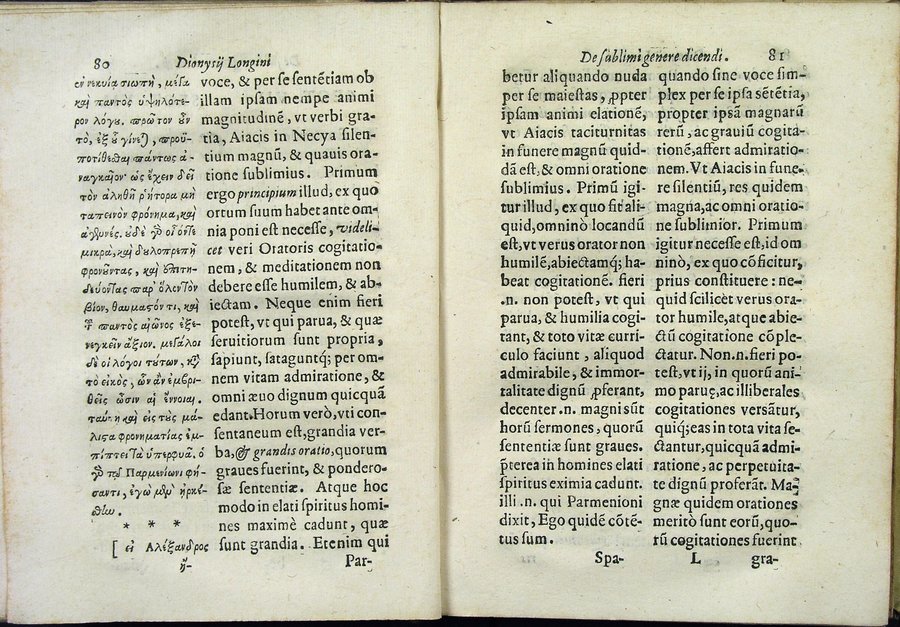 80 Dionysij Longini
ἐν νεκυίᾳ σιωπὴ, μέγα
καὶ παντὸς ὑψηλότε-
ρον λόγου. πρῶτον οὖν
τὸ, ἐξ οὗ γίνεται, προϋ-
ποτίθεσθαι πάντως ἀ-
ναγκαῖον· ὡς ἔχειν δεῖ
τὸν ἀληθῆ ῥήτορα μὴ
ταπεινὸν φρόνημα, καὶ
ἀγεννές. οὐδὲ γὰρ οἷόντε
μικρὰ, καὶ δουλοπρεπῆ
φρονοῦντας, καὶ ἐπιτη-
δεύοντας παρ' ὅλον τὸν
βίον, θαυμαστόν τι, καὶ
τοῦ παντὸς αἰῶνος ἐξε-
νεγκεῖν ἄξιον. μεγάλοι
δὲ οἱ λόγοι τούτων, κατὰ
τὸ εἰκὸς, ὧν ἂν ἐμβρι-
θεῖς ὦσιν αἱ ἔννοιαι.
ταύτῃ καὶ εἰς τοὺς μά-
λιστα φρονηματίας ἐμ-
πίπτει τὰ ὑπερφυᾶ. ὁ
γὰρ τῷ Παρμενίωνι φή-
σαντι, ἐγὼ μὲν ἠρκέ-
σθην.
* * *
[ εἰ Αλέξανδρος
ἤ-
voce, & per se sentētiam ob
illam ipsam nempe animi
magnitudinē, vt verbi gra-
tia, Aiacis in Necya silen-
tium magnū, & quauis ora-
tione sublimius. Primum
ergo principium illud, ex quo
ortum suum habet ante om-
nia poni est necesse, videli-
cet veri Oratoris cogitatio-
nem, & meditationem non
debere esse humilem, & ab-
iectam. Neque enim fieri
potest, vt qui parua, & quæ
seruitiorum sunt propria,
sapiunt, sataguntq; per om-
nem vitam admiratione, &
omni æuo dignum quicquā
edant. Horum verò, vti con-
sentaneum est, grandia ver-
ba, & grandis oratio, quorum
graues fuerint, & pondero-
sæ sententiæ. Atque hoc
modo in elati spiritus homi-
nes maximè cadunt, quæ
sunt grandia. Etenim qui
Par-
De sublimi genere dicendi. 81
betur aliquando nuda
per se maiestas, ꝓpter
ipsam animi elationē,
vt Aiacis taciturnitas
in funere magnū quid-
dā est, & omni oratione
sublimius. Primū igi-
tur illud, ex quo fit ali-
quid, omninò locandū
est, vt verus orator non
humilē, abiectamq; ha-
beat cogitationē. fieri
.n. non potest, vt qui
parua, & humilia cogi-
tant, & toto vitæ curri-
culo faciunt, aliquod
admirabile, & immor-
talitate dignū ꝓferant,
decenter .n. magni sūt
horū sermones, quorū
sententiæ sunt graues.
p̄terea in homines elati
spiritus eximia cadunt.
illi .n. qui Parmenioni
dixit, Ego quidē cōtē-
tus sum.
Spa-
quando sine voce sim-
plex per se ipsa sētētia,
propter ipsā magnarū
rerū, ac grauiū cogita-
tionē, affert admiratio-
nem. Vt Aiacis in fune-
re silentiū, res quidem
magna, ac omni oratio-
ne sublimior. Primum
igitur necesse est, id om
ninò, ex quo cōficitur,
prius constituere : ne-
quid scilicèt verus ora-
tor humile, atque abie-
ctū cogitatione cōple-
ctatur. Non .n. fieri po-
test, vt ij, in quorū ani-
mo paruę, ac illiberales
cogitationes versātur,
quiq; eas in tota vita se-
ctantur, quicquā admi-
ratione, ac perpetuita-
te dignū proferāt. Ma-
gnæ quidem orationes
meritò sunt eorū, quo-
rū cogitationes fuerint
L gra-